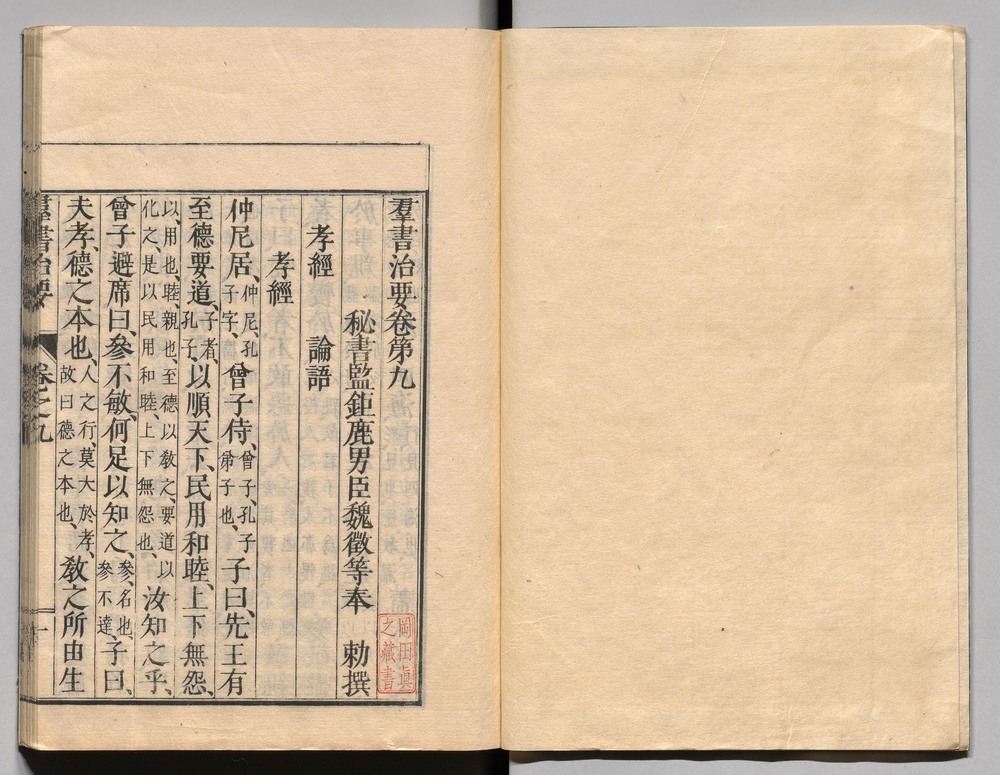 羣書治要卷第九
秘書監鉅鹿男臣魏徵等奉　勅撰
孝經　論語
孝經
仲尼居、仲尼、孔子字、曾子侍、曾子、孔子弟子也、子曰、先王有
至德要道、子者、孔子、以順天下、民用和睦、上下無怨、
以、用也、睦、親也、至德以敎之、要道以化之、是以民用和睦、上下無怨也、汝知之乎、
曾子避席曰、參不敏、何足以知之、參、名也、參不達、子曰、
夫孝、德之本也、人之行、莫大於孝、故曰德之本也、敎之所由生
羣書治要　卷之九　一
岡田眞之藏書